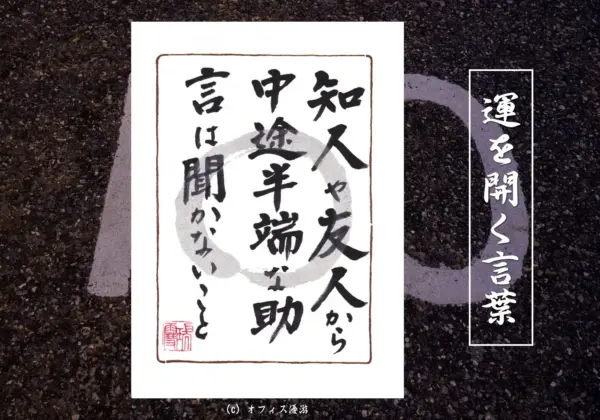 運を開く言葉
知人や友人から
中途半端な助
言は聞かないこと
(C) オフィス優游